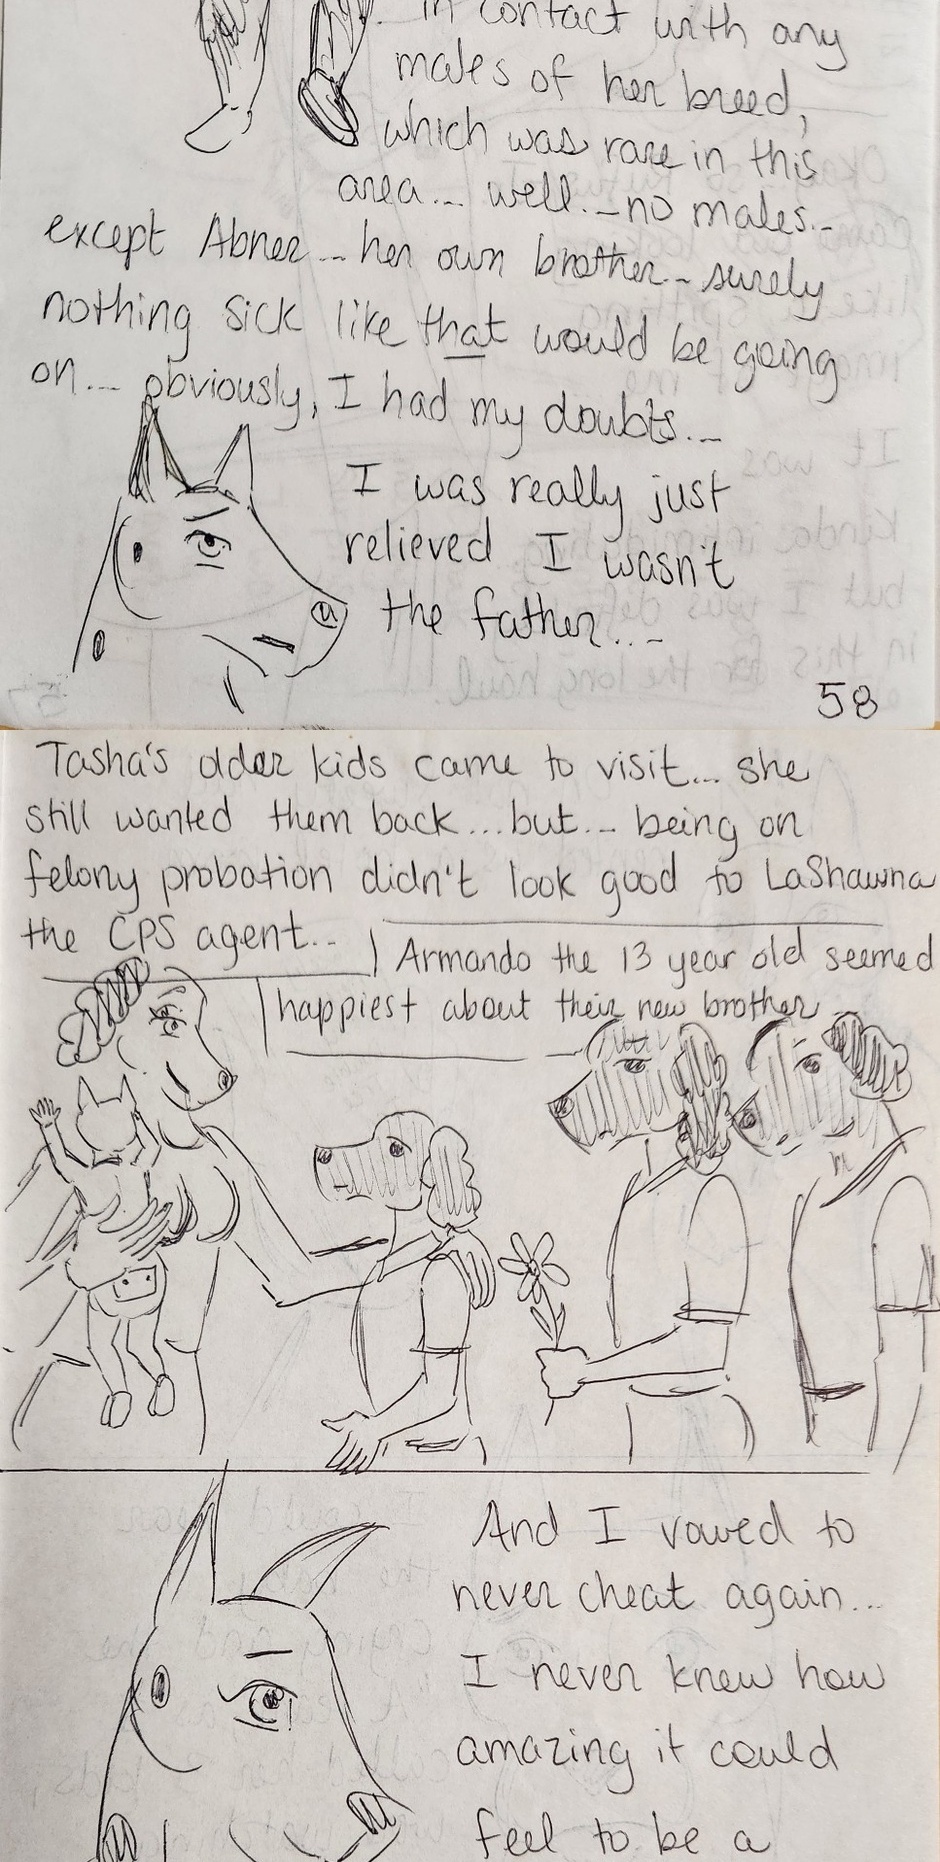 in contact with any
males of her breed,
which was rare in this
area... well... no males...
except Abner... her own brother... surely
nothing sick like that would be going
on... obviously, I had my doubts...
I was really just
relieved I wasn't
the father...
58
Tasha's older kids came to visit... she
still wanted them back... but... being on
felony probation didn't look good to LaShawna
the CPS agent...
Armando the 13 year old seemed
happiest about their new brother
And I vowed to
never cheat again...
I never knew how
amazing it could
feel to be a